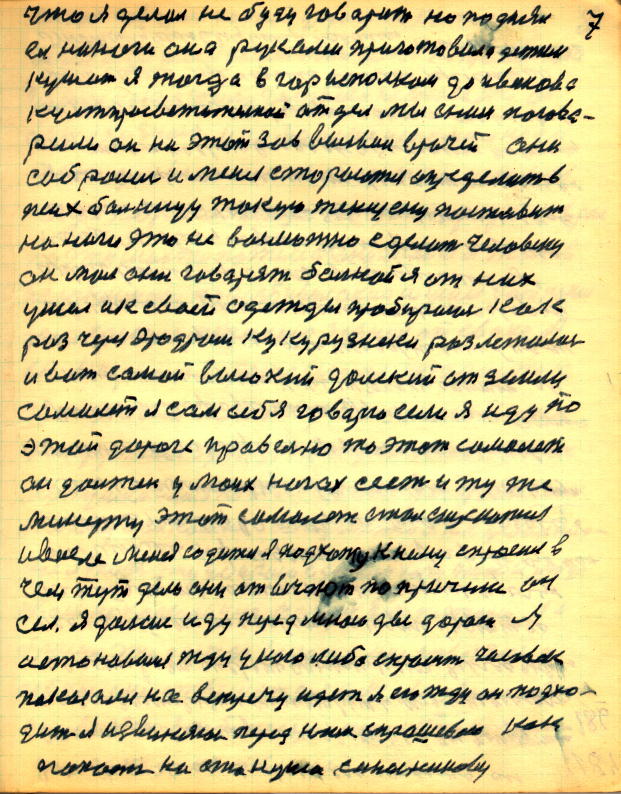 7
что я делал не буду говарит но поднял
ея на ноги она руками приготовила детям
кушат я тогда в горисполком до ивакова
култпросветителной отдел мы сним погова-
рили он на этот зов вызвал врачей они
собралис и меня стараются определить в
псих балницу такую женщену поставит
на ноги это не возможно сделат человеку
он мол они говарят балной я от них
ушел и к своей одежды пробирался как
раз через эродром кукурузники разлетались
и вот самой высокий далекий от земли
самолет я сам себя говарю если я иду по
этой дороге правелно то этот самолет
он должен у моих ногах сест и ту же
минуту этот самолет стал спускатся
и возле меня садится я подхожу к нему спросил в
чем тут дело они отвечают по причине он
сел. я далше иду передомною две дороги я
астановился жду у кого либо спросит человек
показался на встречу идет я его жду он подхо-
дит я извинился перед ним спрашеваю как
попаст на станцыю